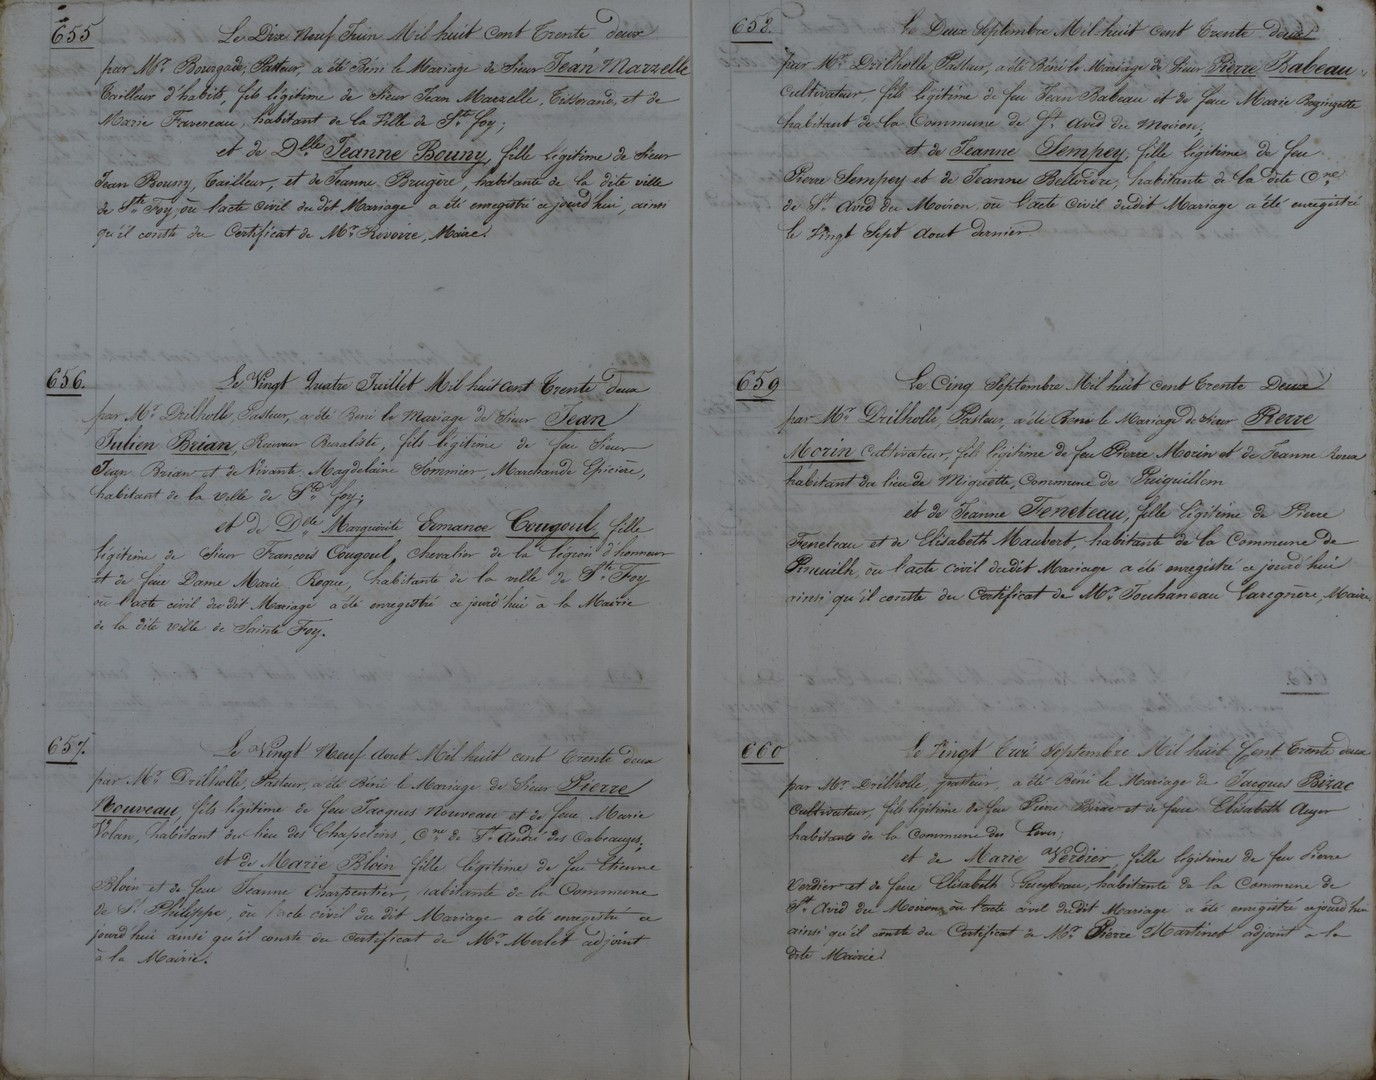 655
Le Dix Neuf Juin Mil huit cent Trente deux
par Mr. Bourgade, Pasteur, a été Béni le Mariage de Sieur Jean Marzelle
Tailleur d'habits, fils légitime de Sieur Jean Marzelle, Tisserand, et de
Marie Favereau, habitant de la Ville de Ste. foy;
et de Dlle Jeanne Bouny, fille légitime de Sieur
Jean Bouny, Tailleur, et de Jeanne Brugère, habitante de la dite ville
de Ste. Foy, où l'acte civil du dit Mariage a été enregistré ce jourd'hui, ainsi
qu'il conste du Certificat de Mr. Rivoire, Maire.
656.
Le Vingt Quatre Juillet Mil huit cent Trente deux
par Mr. Drilholle, Pasteur, a été Béni le Mariage de Sieur Jean
Julien Brian, Receveur Buraliste, fils légitime de feu Sieur
Jean Brian et de Vivante Magdelaine Sommier, Marchande Epicière,
habitant de la ville de Ste. foy;
et de Dlle Marguerite Ermance Cougoul, fille
légitime de Sieur François Cougoul, Chevalier de la légion d'honneur
et de feue Dame Marie Reque, habitante de la ville de Ste. Foy
où l'acte civil du dit Mariage a été enregistré ce jourd'hui à la Mairie
de la dite ville de Sainte Foy.
657.
Le Vingt Neuf Aout Mil huit cent Trente deux
par Mr. Drilholle, Pasteur, a été Béni le Mariage de Sieur Pierre
Nouveau, fils légitime de feu Jacques Nouveau et de feue Marie
Volan, habitant du lieu des Chapelens, Cne. de St. André des Cabeauzes,
et de Marie Bloin fille légitime de feu Etienne
Bloin et de feue Jeanne Charpentier, habitante de la Commune
de St. Philippe, où l'acte civil du dit Mariage a été enregistré ce
jourd'hui ainsi qu'il conste du certificat de Mr. Merlet adjoint
à la Mairie.
658.
Le Deux Septembre Mil huit cent Trente deux
par Mr. Drilholle Pasteur, a été Béni le Mariage de Sieur Pierre Babeau
Cultivateur, fils légitime de feu Jean Babeau et de feue Marie
habitant de la Commune de St. Avid du Moiron,
et de Jeanne Sempey, fille légitime de feu
Pierre Sempey et de Jeanne Bellerive, habitante de la dite Cne.
de St. Avid du Moiron où l'acte civil dudit Mariage a été enregistré
le Vingt Sept Aout dernier.
659
Le Cinq Septembre Mil huit cent Trente Deux
par Mr. Drilholle, Pasteur, a été Béni le Mariage de Sieur Pierre
Morin Cultivateur, fils légitime de feu Pierre Morin et de Jeanne Roux
habitant du lieu de Miquette, Commune de Puiguillem
et de Jeanne Feneteau, fille légitime de Pierre
Feneteau et de Elisabeth Maubert, habitante de la Commune de
Pineuilh, où l'acte civil dudit Mariage a été enregistré ce jourd'hui
ainsi qu'il conste du Certificat de Mr. Jouhaneau Laregnère, Maire
660
Le Vingt Trois Septembre Mil huit Cent Trente deux
par Mr. Drilholle, Pasteur, a été Béni le Mariage de Jacques Bizac
Cultivateur, fils légitime de feu Pierre Bizac et de feue Elisabeth Auger
habitants de la Commune des Leves;
et de Marie Verdier, fille légitime de feu Pierre
Verdier et de feue Elisabeth Gueybeau, habitante de la Commune de
St. Avid du Moiron où l'acte civil dudit Mariage a été enregistré ce jourd'hui
ainsi qu'il conste du Certificat de Mr. Pierre Martinet adjoint à la
dite Mairie.